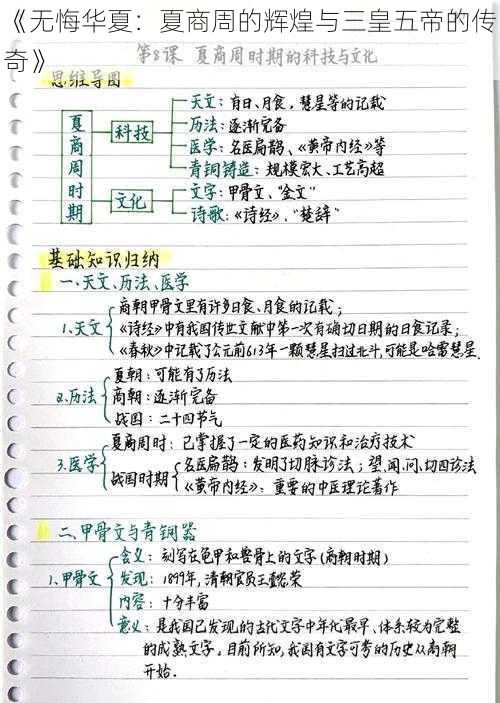 《无悔华夏：夏商周的辉煌与三皇五帝的传
奇》
第8课 夏商周时期的科技与文化
思维导图
夏商周时期
科技
天文：有日、月食，慧星等的记载
历法：逐渐完备
医学：名医扁鹊、《黄帝内经》等
青铜铸造：规模宏大、工艺高超
文化
文字：甲骨文、"金文"
诗歌：《诗经》、"楚辞"
基础知识归纳
一、天文、历法、医学
1、天文
商朝甲骨文里有许多日食、月食的记载；
《诗经》中有我国传世文献中第一次有确切日期的日食记录；
《春秋》中记载了公元前613年一颗慧星扫过北斗，可能是哈雷慧星．
2、历法
夏朝：可能有了历法
商朝：逐渐完备
战国：二十四节气
3、医学
夏商周时：已掌握了一定的医药知识和治疗技术
战国时期
名医扁鹊：发明了切脉诊法；望、闻、问、切四诊法
《黄帝内经》：重要的中医理论著作
二、甲骨文与青铜器
1、甲骨文
含义：刻写在龟甲和兽骨上的文字（商朝时期）
发现：1899年，清朝官员王懿荣
内容：十分丰富
意义：是我国已发现的古代文字中年代最早、体系较为完整
的成熟文字，目前所知，我国有文字可考的历史从商朝
开始．